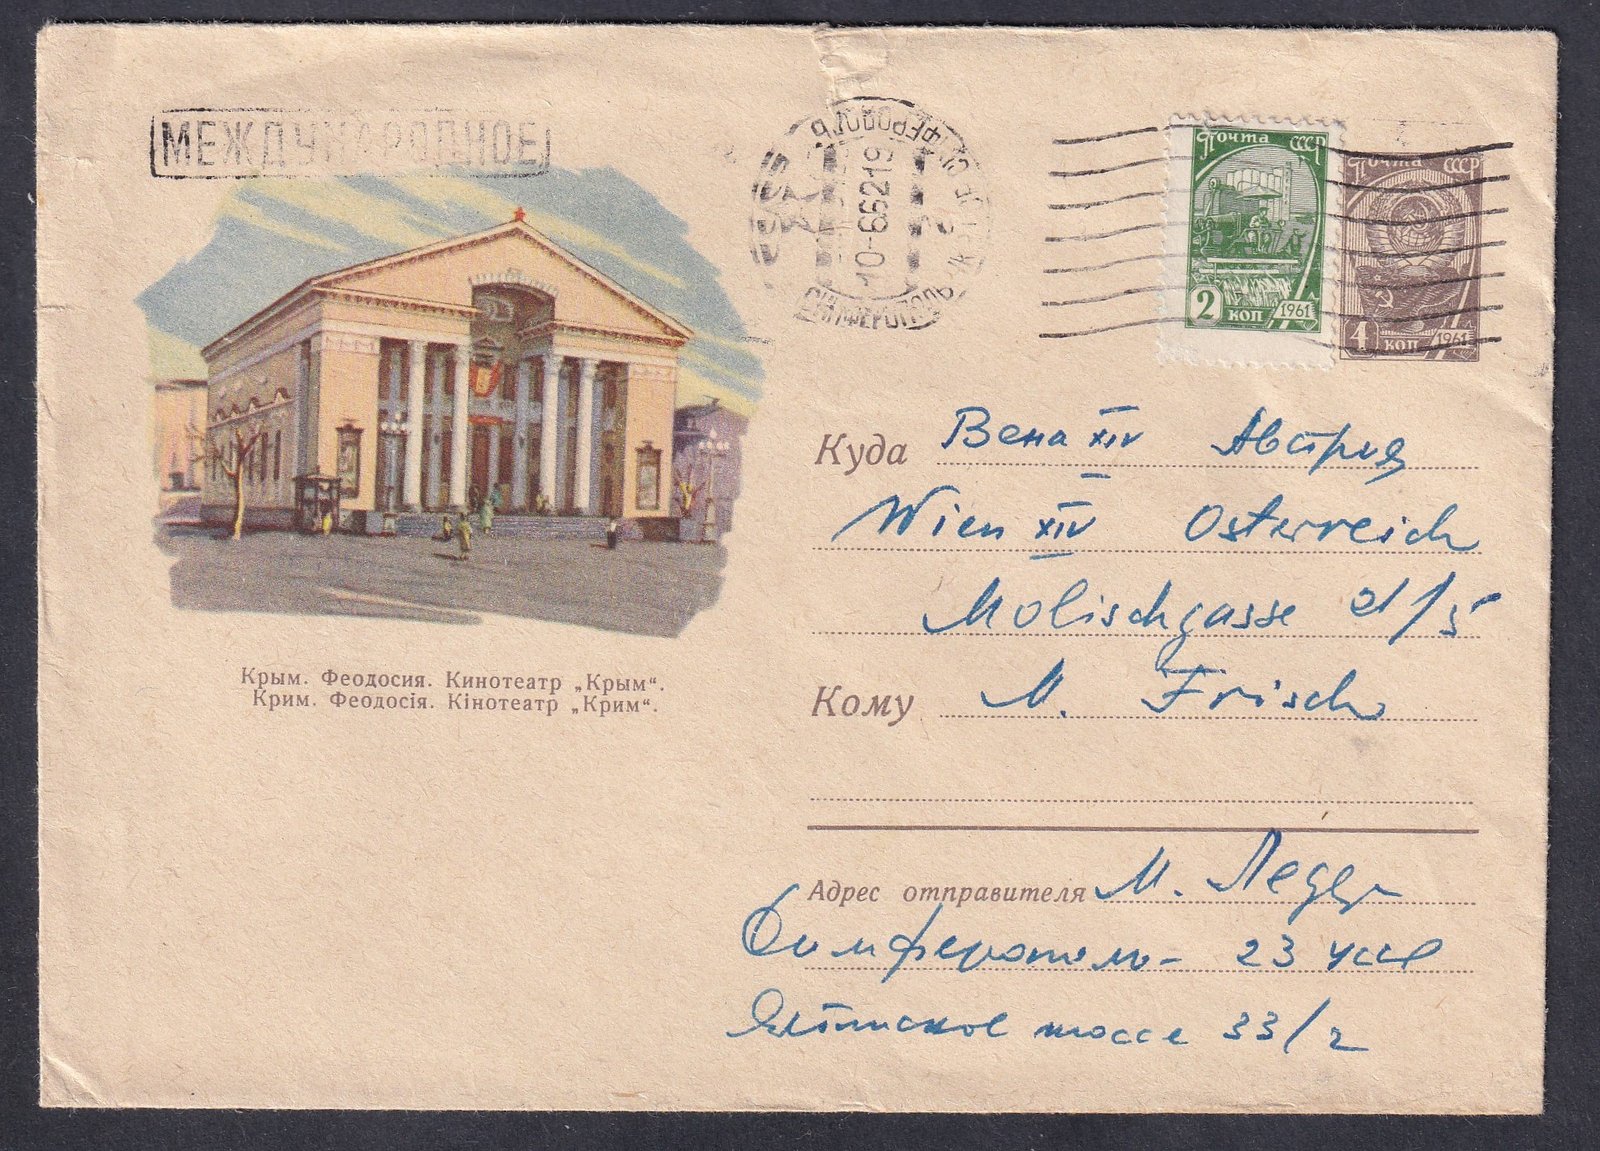 МЕЖДУНАРОДНОЕ
СИМФЕРОПОЛЬ
10-6 62 19
ПОЧТА СССР
2 КОП 1961
ПОЧТА СССР
4 КОП 1961
Крым. Феодосия. Кинотеатр „Крым“.
Крим. Феодосія. Кінотеатр „Крим“.
Куда Вена XIV Австрия
Wien XIV Österreich
Molischgasse 21/5
Кому M. Frisch
Адрес отправителя М.
Симферополь - 23 УССР
Ялтинское шоссе 33/2